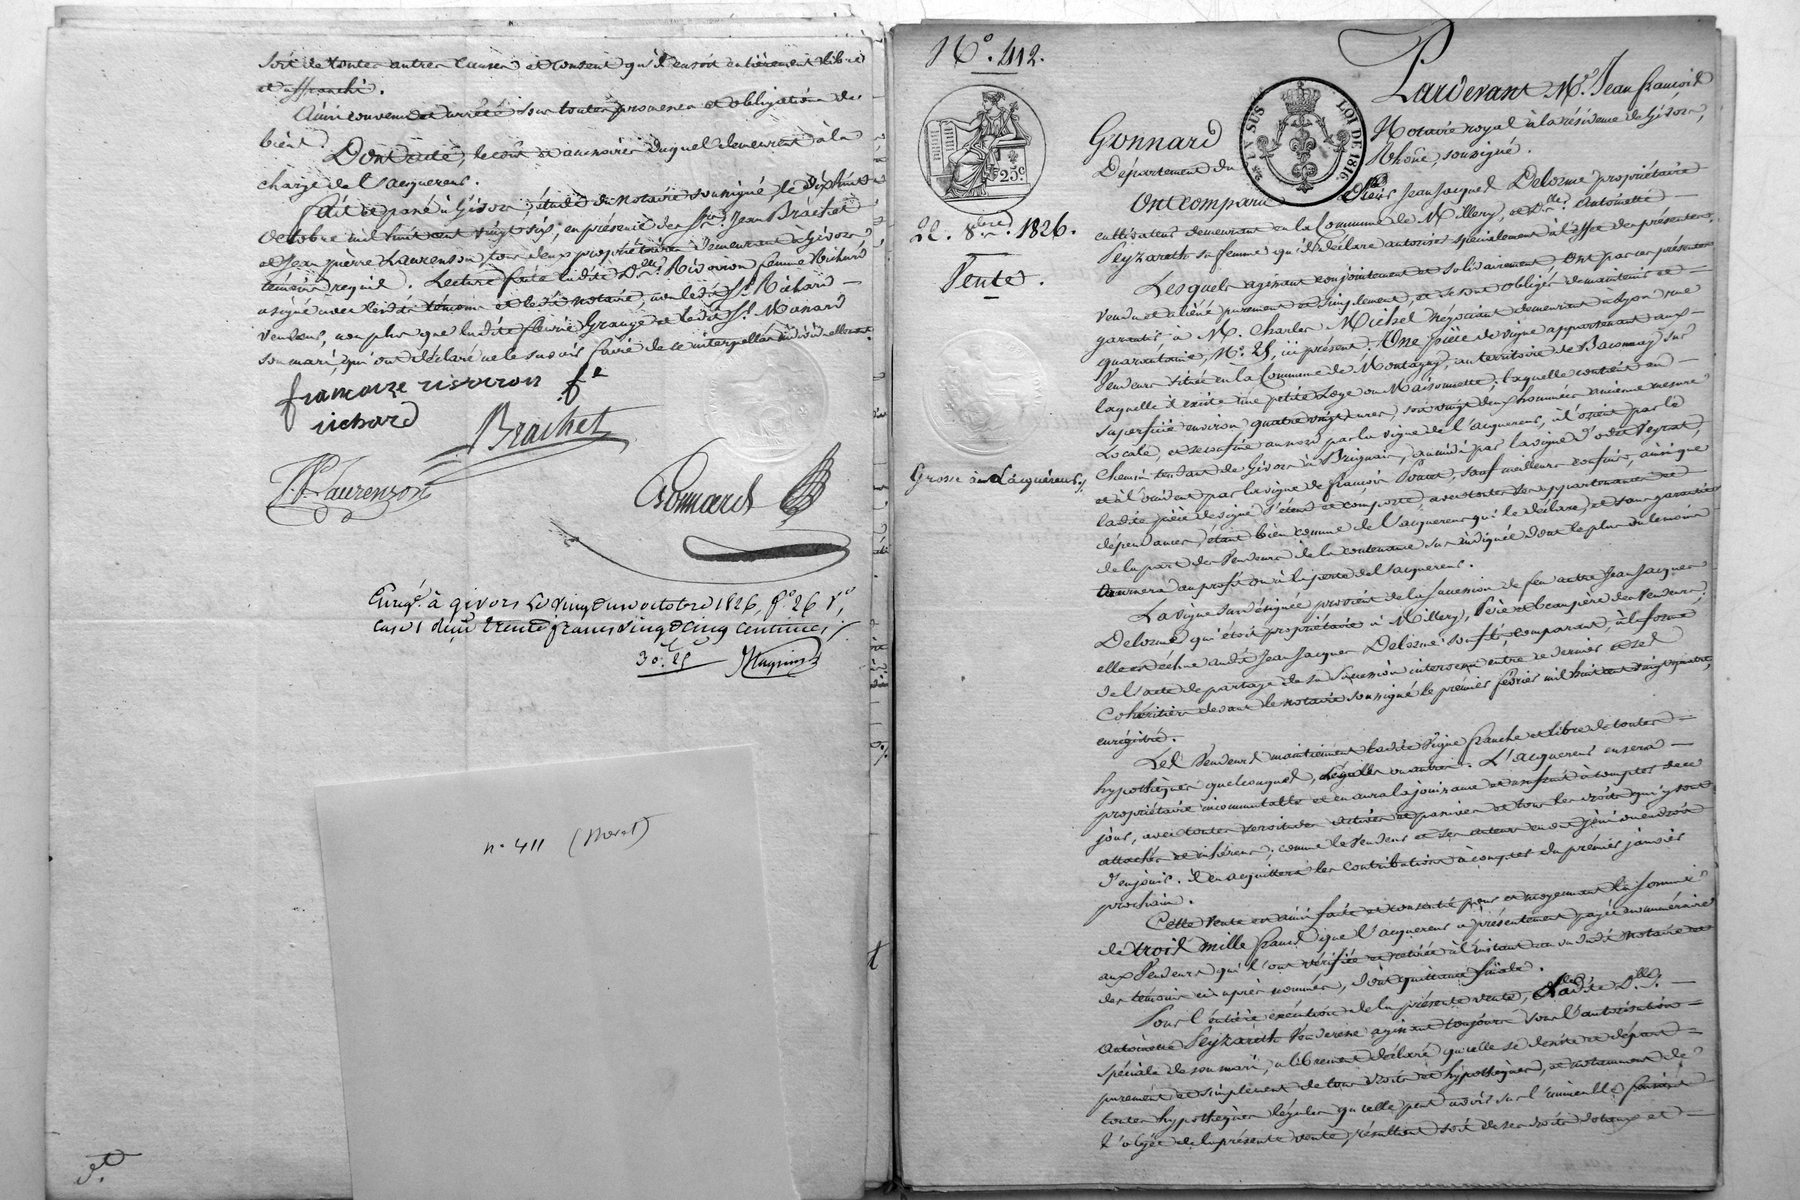 soit de toutes autres causes et consent qu'il en soit entièrement libre
et affranchi.
Ainsi convenu et arrêté sous toutes promesses et obligations de
bient
Dont acte, le coût et accessoires duquel demeurent à la
charge de l'acquereur.
Fait et passé à Givors, étude du notaire soussigné, le dix huit
octobre mil huit cent vingt six, en présence des Srs Jean Brachet
et Jean pierre Laurenson tous deux propriétaires demeurant à Givors
témoins requis. Lecture faite ladite D.lle Risorion femme Richard
a signé avec lesdits témoins et ledit notaire, non ledit S.r Richard —
vendeur, non plus que ladite fleurie Grange et ledit S.r Monard
son mari, qui ont déclaré ne le savoir faire de ce interpellés individuellement
francoize risorion fe
richard
Brachet
J.P. Laurenson
Gonnard
Enrg.é à givors Le vingt un octobre 1826, f.o 26 v.o,
case 1 reçu trente francs vingt cinq centimes;
30.f 25
Magnin
n.o 411 (Morel)
N.o 412.
25.c
EN SUS
LOI DE 1816
22. 8bre 1826.
Vente.
Grosse à l'acquéreur
Pardevant M.e Jean françois
Gonnard Notaire royal à la résidence de Givors,
Département du Rhône, soussigné.
Ont comparu Sieur Jean Jacques Delorme propriétaire
cultivateur demeurant en la Commune de Millery, et D.lle Antoinette —
Peyzareth sa femme qu'il déclare autoriser spécialement à l'effet des présentes,
Lesquels agissant conjointement et solidairement Ont par ces présentes
vendu et aliéné purement et simplement, et se sont obligés de maintenir et —
garantir, à M. Charles Michel négociant demeurant à Lyon rue
quarantaine, N.o 25, ici présent. Une pièce de vigne appartenant aux —
Vendeurs située en la Commune de Montagny, au territoire de Baconnay sur
laquelle il existe une petite Loge ou Maisonnette; laquelle contient en —
superficie environ quatre vingt ares, soit vingt deux hommées ancienne mesure
Locale, et se confine au nord par la vigne de l'acquereur, à l'orient par le
Chemin tendant de Givors à Brignais, au midi par la vigne d'odet Veyrat,
et à l'occident par la vigne de françois Poncet, sauf meilleurs confins, ainsi que
ladite pièce de vigne s'étend et comporte avec toutes ses appartenances et
dépendances, étant bien connue de l'acquereur qui le déclare, et sans garantie
de la part des Vendeurs de la contenance sus indiquée dont le plus ou le moins
tournera au profit ou à la perte de l'acquereur.
La vigne sus désignée provient de la succession de feu autre Jean Jacques
Delorme qui étoit propriétaire à Millery, Père et beau père des Vendeurs;
elle est échue audit Jean Jacques Delorme son fils, comparant, à la forme
de l'acte de partage de sa Succession intervenu entre ce dernier et ses
Cohéritiers devant le notaire soussigné le premier février mil huit cent vingt quatre,
enregistré.
Les Vendeurs maintiennent ladite Vigne franche et libre de toutes —
hypothèques quelconques, légales ou autres. L'acquereur en sera —
propriétaire incommutable et en aura la jouissance et usufruit à compter de ce
jour, avec toutes servitudes actives et passives et tous les droits qui y sont
attachés et inhérens, comme le Vendeur et ses auteurs en ont joui ou eu droit
d'en jouir. il en acquittera les contributions à compter du premier janvier
prochain.
Cette vente est ainsi faite et consentie pour et moyennant la somme
de trois mille francs que l'acquereur a présentement payée en numéraire
aux Vendeurs qui l'ont vérifiée et retirée à l'instant au vu dudit notaire et
des témoins ci après nommés, dont quittance finale.
Pour l'entière exécution de la présente vente, ladite D.lle —
Antoinette Peyzareth Venderesse agissant toujours sous l'autorisation —
spéciale de son mari, a librement déclaré qu'elle se désiste et départ —
purement et simplement de tous droits et hypothèques, et notamment de
toutes hypothèques légales qu'elle peut avoir sur l'immeuble faisant
l'objet de la présente vente, résultant soit de ses droits dotaux et —